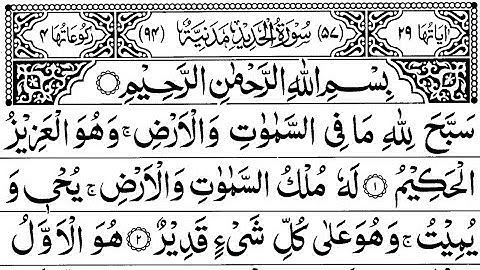 اٰیَاتُهَا ٢٩ (۵۷) سُوْرَةُ الْحَدِیْدِ مَدَنِیَّةٌ (۹۴) رُكُوْعَاتُهَا ۴
بِسْمِ اللهِ الرَّحْمٰنِ الرَّحِیْمِ
سَبَّحَ لِلّٰهِ مَا فِی السَّمٰوٰتِ وَالْاَرْضِ ۚ وَهُوَ الْعَزِیْزُ
الْحَكِیْمُ ۝۱ لَهٗ مُلْكُ السَّمٰوٰتِ وَالْاَرْضِ ۚ یُحْیٖ وَ
یُمِیْتُ ۚ وَهُوَ عَلٰی كُلِّ شَیْءٍ قَدِیْرٌ ۝۲ هُوَ الْاَوَّلُ